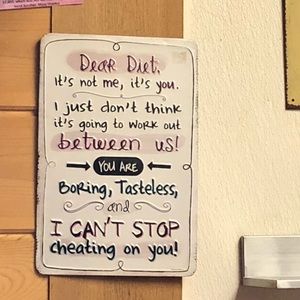 Dear Diet,
It's not me, it's you.
I just don't think
it's going to work out
between us!
YOU ARE
Boring, Tasteless,
and
I CAN'T STOP
cheating on you!